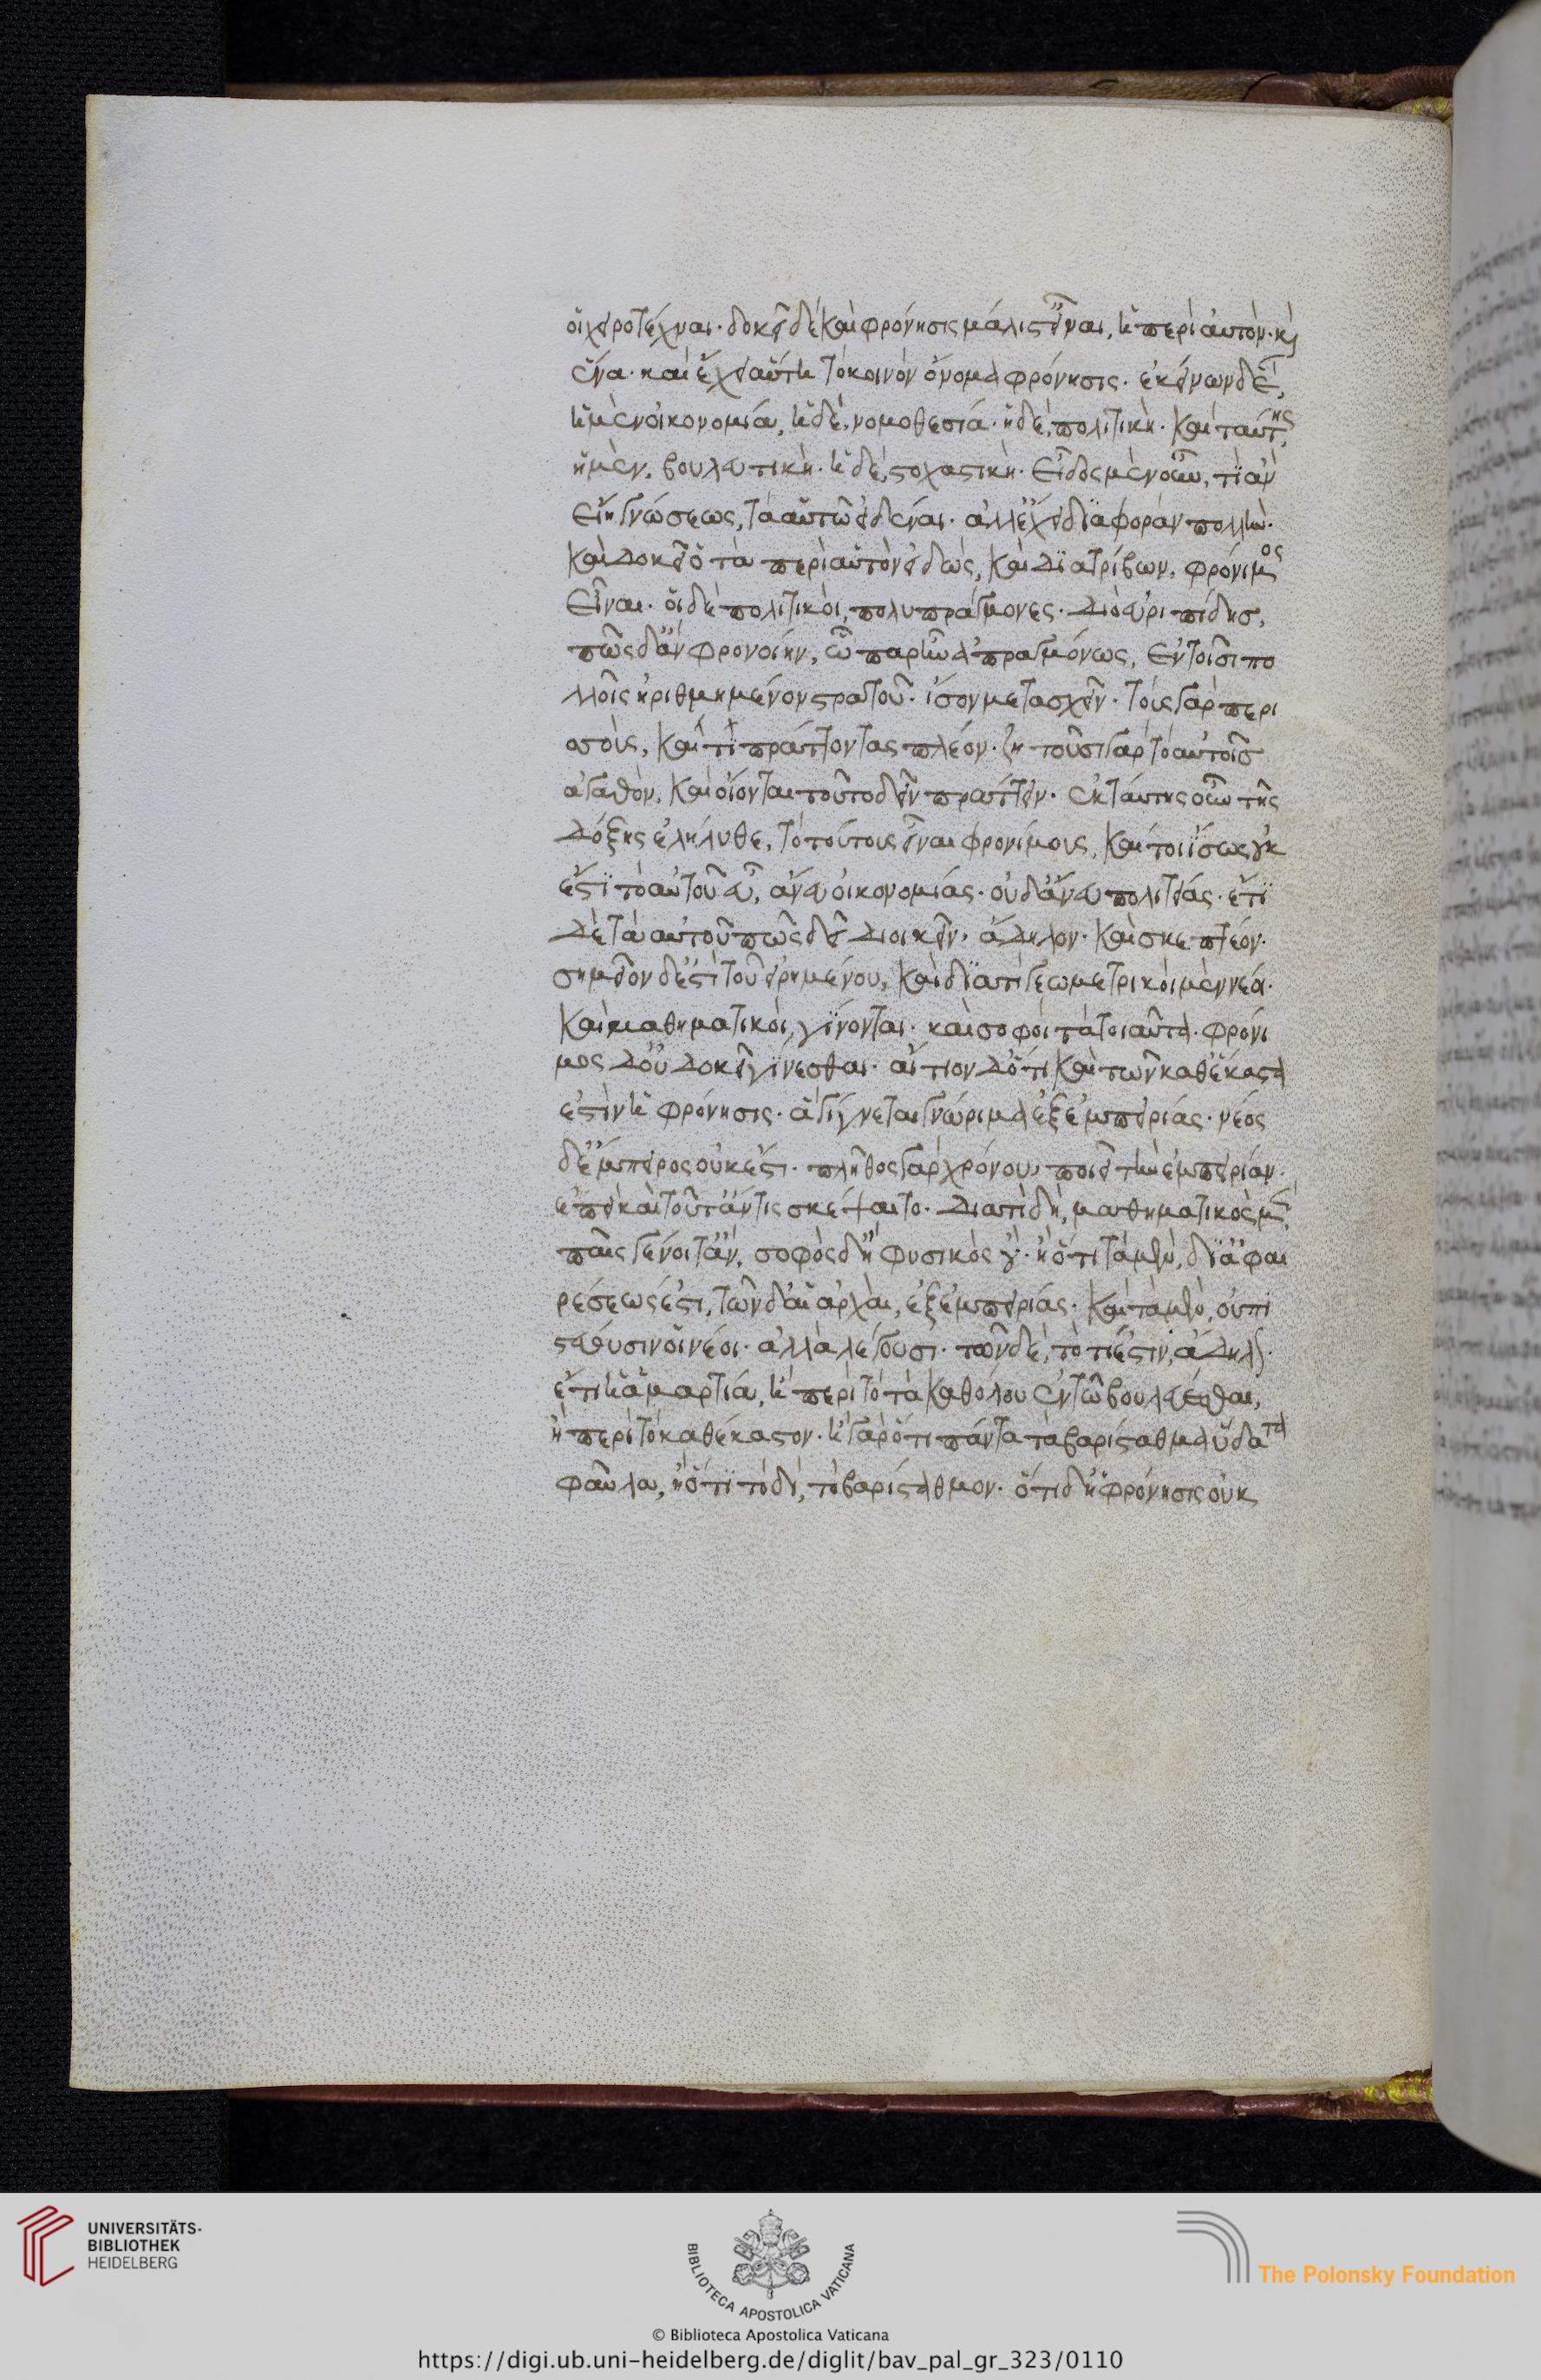 οἱ χειροτέχναι· δοκεῖ δὲ καὶ φρόνησις μάλιστ εἶναι, ἡ περὶ αὐτὸν· κὶ
ἕνα· καὶ ἔχει αὕτη τὸ κοινὸν ὄνομα φρόνησις· ἐκείνων δὲ,
ἡ μὲν οἰκονομία, ἡ δὲ, νομοθεσία· ἡ δὲ, πολιτικὴ· καὶ ταύτης,
ἡ μὲν, βουλευτικὴ· ἡ δὲ, στοχαστικὴ· εἶδος μὲν οὖν, τὶ ἂν
εἴη γνώσεως, τὰ αὑτῶ εἰδέναι· ἀλλ ἔχει διαφορὰν πολλὴν·
καὶ δοκεῖ ὁ τὰ περὶ αὑτὸν εἰδὼς, καὶ διατρίβων, φρόνιμος
εἶναι· οἱ δὲ πολιτικοὶ, πολυπράγμονες· διὸ εὐριπίδησ,
πῶς δ ἂν φρονοίην, ὧ παρῆν ἀπραγμόνως, ἐν τοῖσι πο
λλοῖς ἠριθμημένον στρατοῦ· ἴσον μετασχεῖν· τοὺς γὰρ περι
σσοὺς, καί τι πράττοντας πλέον· ζητοῦσι γὰρ τὸ αὐτοῖσ
ἀγαθὸν, καὶ οἴονται τοῦτο δεῖν πράττειν· ἐκ ταύτης οὖν τῆς
δόξης ἐλήλυθε, τὸ τούτους εἶναι φρονίμους, καί τοι ἴσως οὐκ
ἔστι τὸ αὐτοῦ εὖ, ἄνευ οἰκονομίας· οὐδ ἄνευ πολιτείας· ἔτι
δὲ τὰ αὐτοῦ πῶς δεῖ διοικεῖν, ἄδηλον· καὶ σκεπτέον·
σημεῖον δ ἐστὶ τοῦ εἰρημένου, καὶ διατί γεωμετρικοὶ μὲν νέοι·
καὶ μαθηματικοὶ, γίνονται· καὶ σοφοὶ τὰ τοιαῦτα· φρόνι
μος δ οὐ δοκεῖ γίνεσθαι· αἴτιον δ ὅτι καὶ τῶν καθ ἕκαστα
ἐστὶν ἡ φρόνησις· ἃ γίγνεται γνώριμα ἐξ ἐμπειρίας· νέος
δ ἔμπειρος οὐκ ἔστι· πλῆθος γὰρ χρόνου, ποιεῖ τὴν ἐμπειρίαν·
ἐπεὶ καὶ τοῦτ ἄν τις σκέψαιτο· διατὶ δὴ, μαθηματικὸς μὲν,
παῖς γένοιτ ἄν, σοφὸς δ ἢ φυσικὸς οὔ· ἢ ὅτι τὰ μὲν, δι ἀφαι
ρέσεως ἐστι, τῶν δ αἱ ἀρχαὶ, ἐξ ἐμπειρίας· καὶ τὰ μὲν, οὐ πι
στεύουσιν οἱ νέοι· ἀλλὰ λέγουσι· τῶν δὲ, τὸ τί ἐστιν, ἄδηλον·
ἔτι ἡ ἁμαρτία, ἢ περὶ τὸ τὰ καθόλου ἐν τῶ βουλεύεσθαι,
ἢ περὶ τὸ καθέκαστον· ἢ γὰρ ὅτι πάντα τὰ βαρίσταθμα ὕδατα
φαῦλα, ἢ ὅτι τὸ δὶ, τὸ βαρίσταθμον· ὅτι δ ἡ φρόνησις οὐκ
UNIVERSITÄTS-
BIBLIOTHEK
HEIDELBERG
BIBLIOTECA APOSTOLICA VATICANA
The Polonsky Foundation
© Biblioteca Apostolica Vaticana
https://digi.ub.uni-heidelberg.de/diglit/bav_pal_gr_323/0110